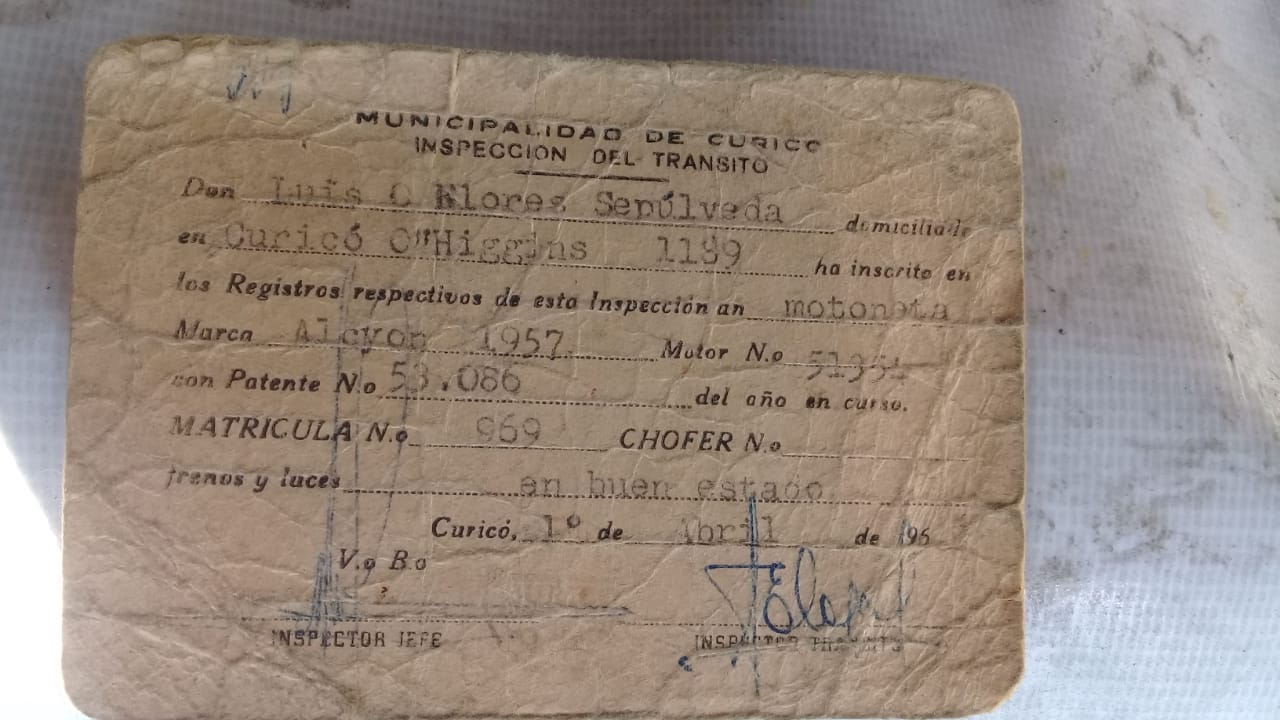 MUNICIPALIDAD DE CURICO
INSPECCION DEL TRANSITO
Don Luis C Flores Sepúlveda domiciliado
en Curicó O"Higgins 1199 ha inscrito en
los Registros respectivos de esta Inspección an motoneta
Marca Alcyon 1957 Motor N.o
con Patente N.o 53.086 del año en curso.
MATRICULA N.o 969 CHOFER N.o
frenos y luces en buen estado
Curicó, 1º de Abril de 196
V.o B.o
INSPECTOR JEFE INSPECTOR TRANSITO